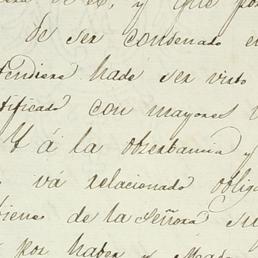 y que por
de ser condenado e
tendiere hade ser visto
tificado con mayores
Y á la obserbancia y
vá relacionado oblig
biene de la Señora
por haber y